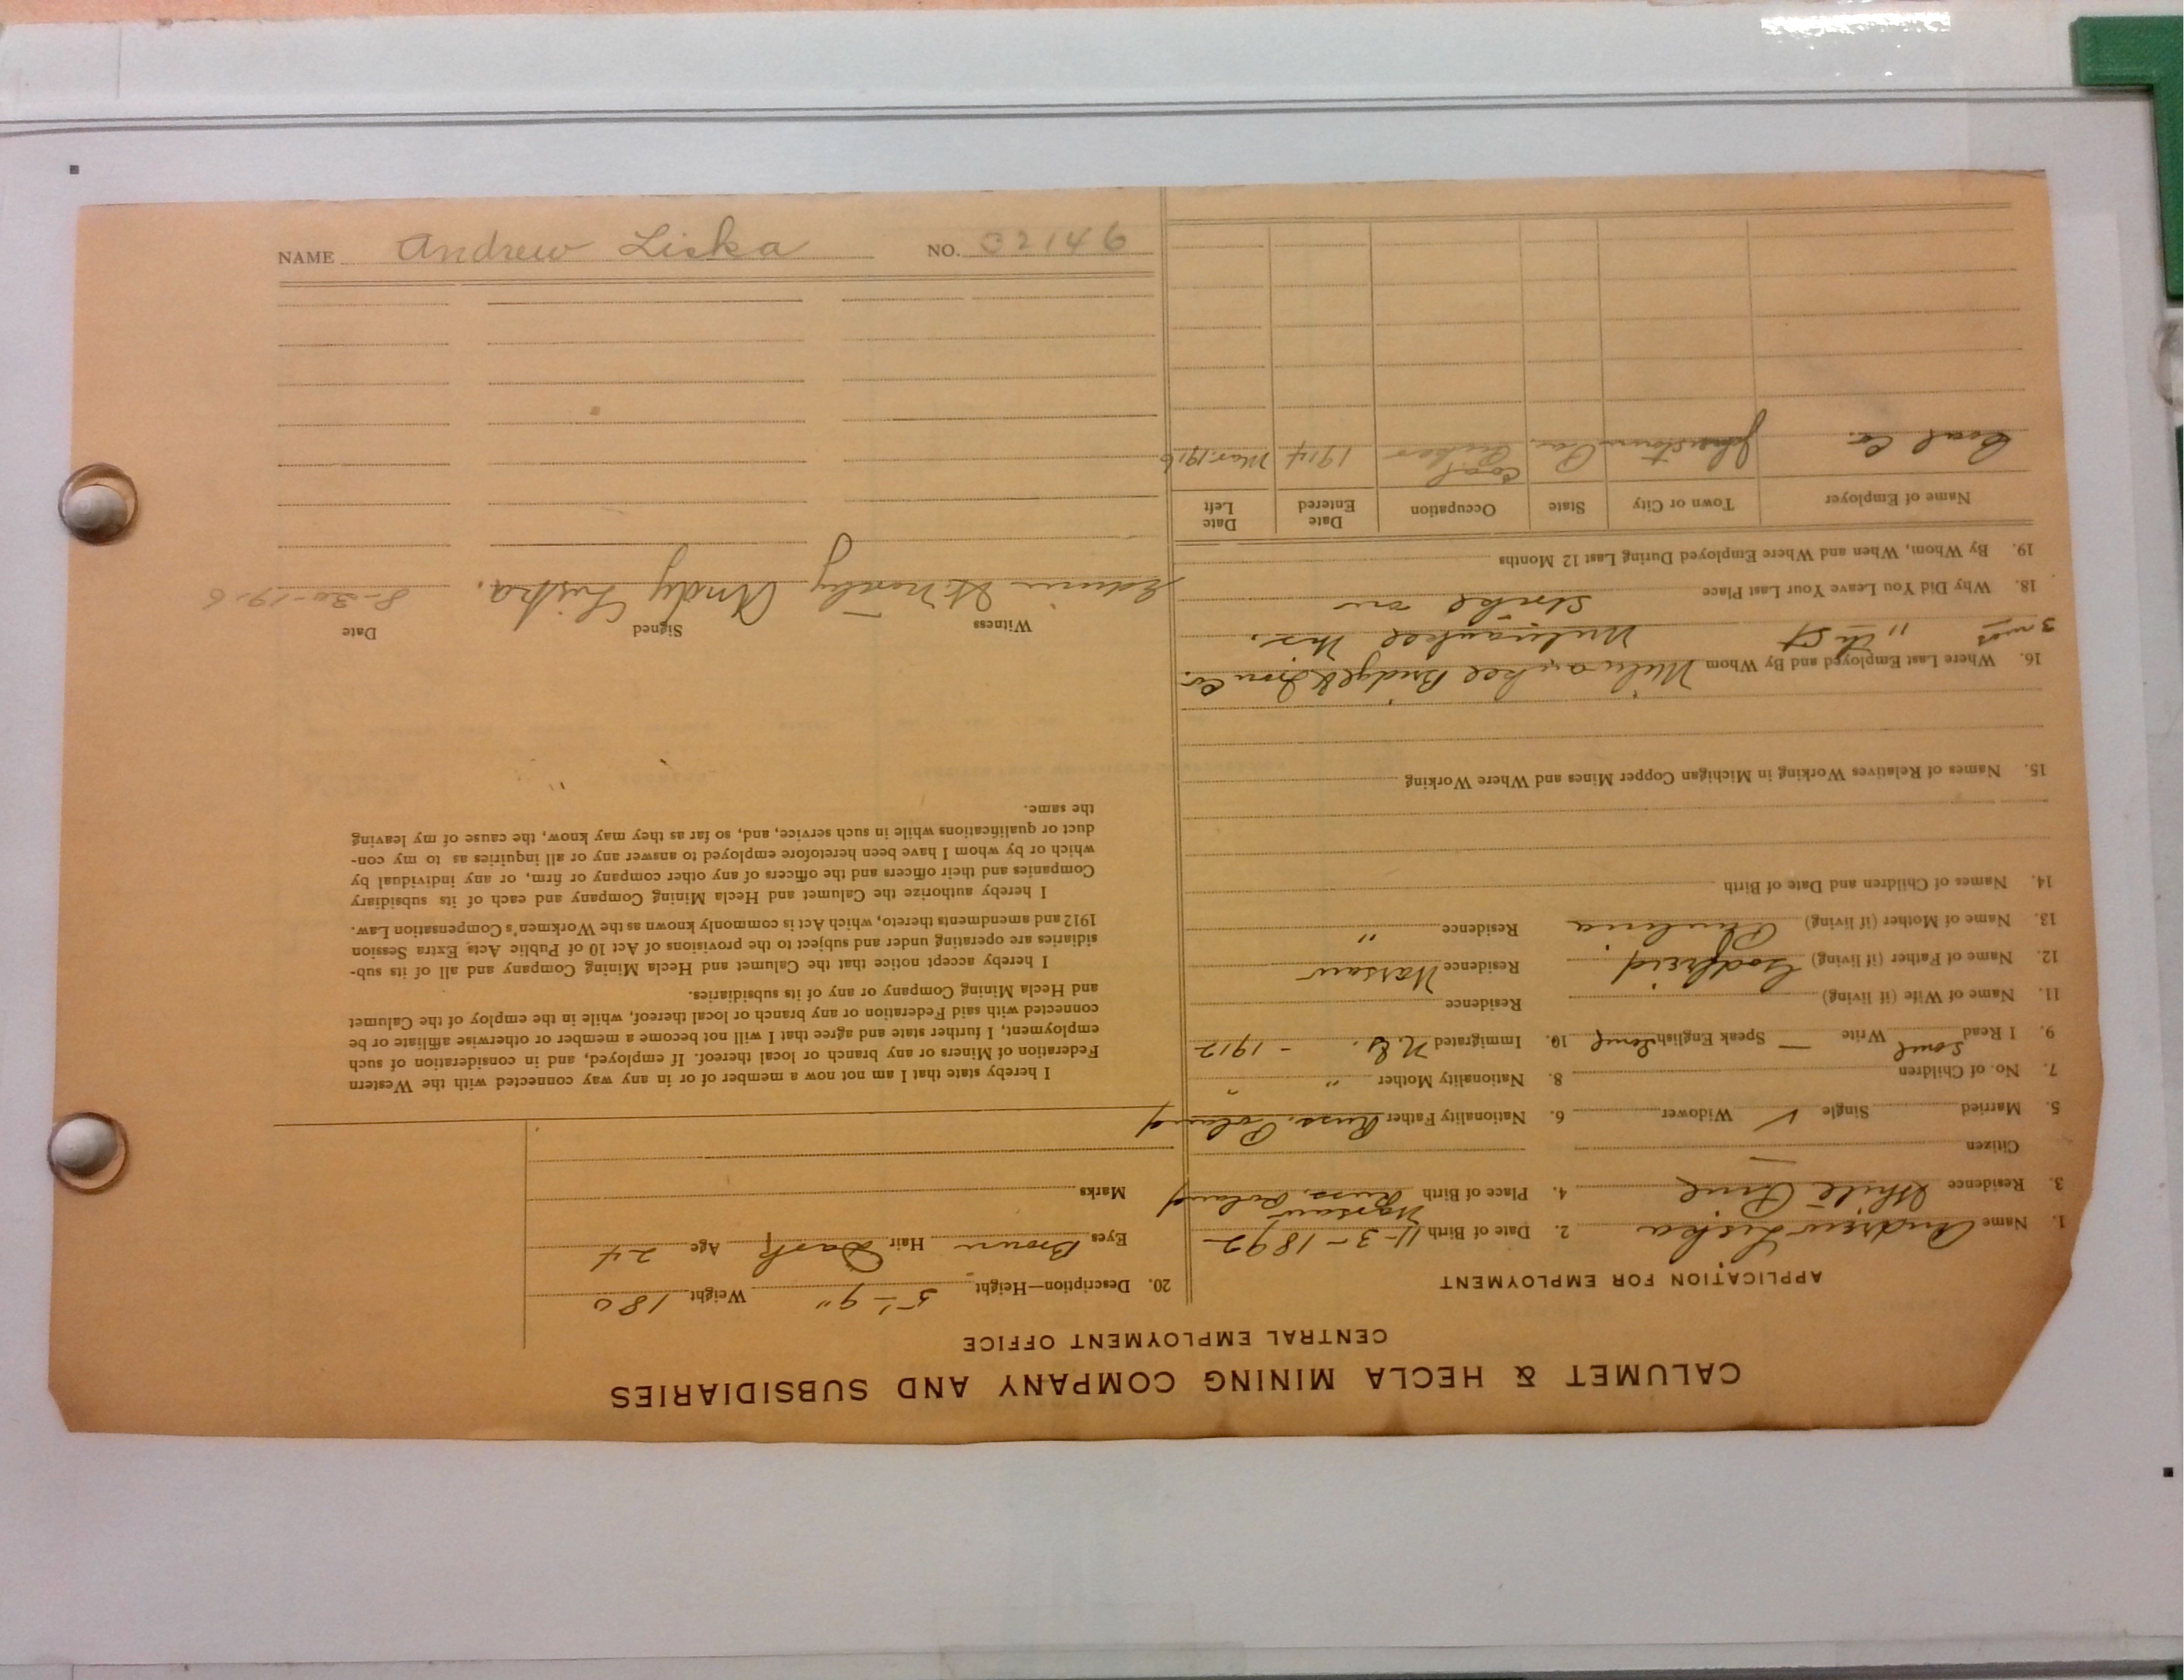 CALUMET & HECLA MINING COMPANY AND SUBSIDIARIES
CENTRAL EMPLOYMENT OFFICE
APPLICATION FOR EMPLOYMENT
1. Name Andrew Liska 2. Date of Birth 11-3-1892
3. Residence White Pine 4. Place of Birth Warsaw Russ. Poland
Citizen —
5. Married Single ✓ Widower 6. Nationality Father Russ. Poland
7. No. of Children 8. Nationality Mother " "
9. I Read some Write — Speak English some 10. Immigrated N.Y. - 1912
11. Name of Wife (if living) Residence
12. Name of Father (if living) Godfreid Residence Warsaw
13. Name of Mother (if living) Residence "
14. Names of Children and Date of Birth
15. Names of Relatives Working in Michigan Copper Mines and Where Working
16. Where Last Employed and By Whom Milwaukee Bridge & Iron Co.
3 mos " th St Milwaukee Wis.
18. Why Did You Leave Your Last Place strike on
19. By Whom, When and Where Employed During Last 12 Months
Name of Employer Town or City State Occupation Date Entered Date Left
Coal Co. Johnstown Pa. Coal 1914 Mar. 1916
20. Description—Height 5'-9" Weight 180
Eyes Brown Hair Dark Age 24
Marks
I hereby state that I am not now a member of or in any way connected with the Western
Federation of Miners or any branch or local thereof. If employed, and in consideration of such
employment, I further state and agree that I will not become a member or otherwise affiliate or be
connected with said Federation or any branch or local thereof, while in the employ of the Calumet
and Hecla Mining Company or any of its subsidiaries.
I hereby accept notice that the Calumet and Hecla Mining Company and all of its sub-
sidiaries are operating under and subject to the provisions of Act 10 of Public Acts, Extra Session
1912 and amendments thereto, which Act is commonly known as the Workmen's Compensation Law.
I hereby authorize the Calumet and Hecla Mining Company and each of its subsidiary
Companies and their officers and the officers of any other company or firm, or any individual by
which or by whom I have been heretofore employed to answer any or all inquiries as to my con-
duct or qualifications while in such service, and, so far as they may know, the cause of my leaving
the same.
Witness Signed Date
Edwin Andy Liska. 8-30-1916
NAME Andrew Liska NO. 02146